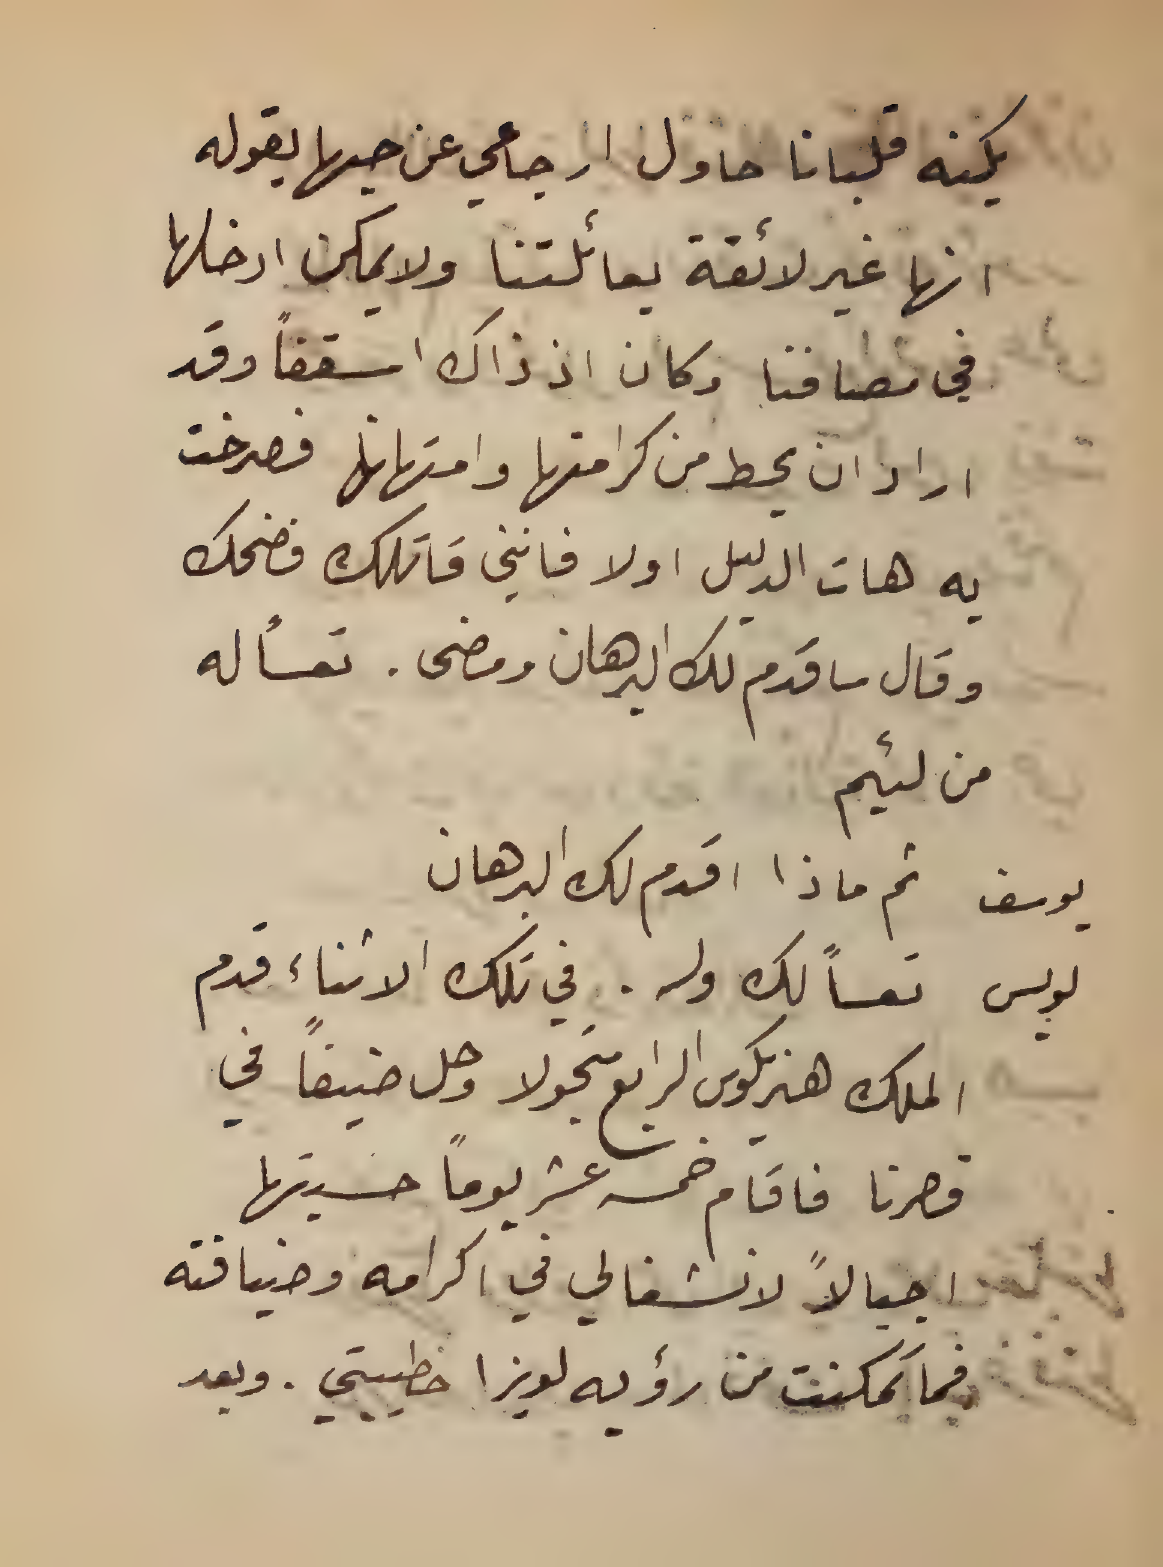 يكنه قلبانا حاول ارجاعي عن حبها بقوله
انها غير لائقة بعائلتنا ولا يمكن ادخلها
في مصافنا وكان اذ ذاك اسقفاً وقد
اراد ان يحط من كرامتها وامتهانها فصرخت
به هات الدليل اولا فانني قاتلك فضحك
وقال ساقدم لك البرهان ومضى . تعساً له
من لئيم
يوسف ثم ماذا اقدم لك البرهان
لويس تعساً لك وله . في تلك الاثناء قدم
الملك هنريكوس الرابع متجولا وحل ضيفاً في
قصرنا فاقام خمسه عشر يوماً حسبتها
اجيالاً لانشغالي في اكرامه وضيافته
فما تمكنت من رؤيه لويزا خطيبتي . وبعد